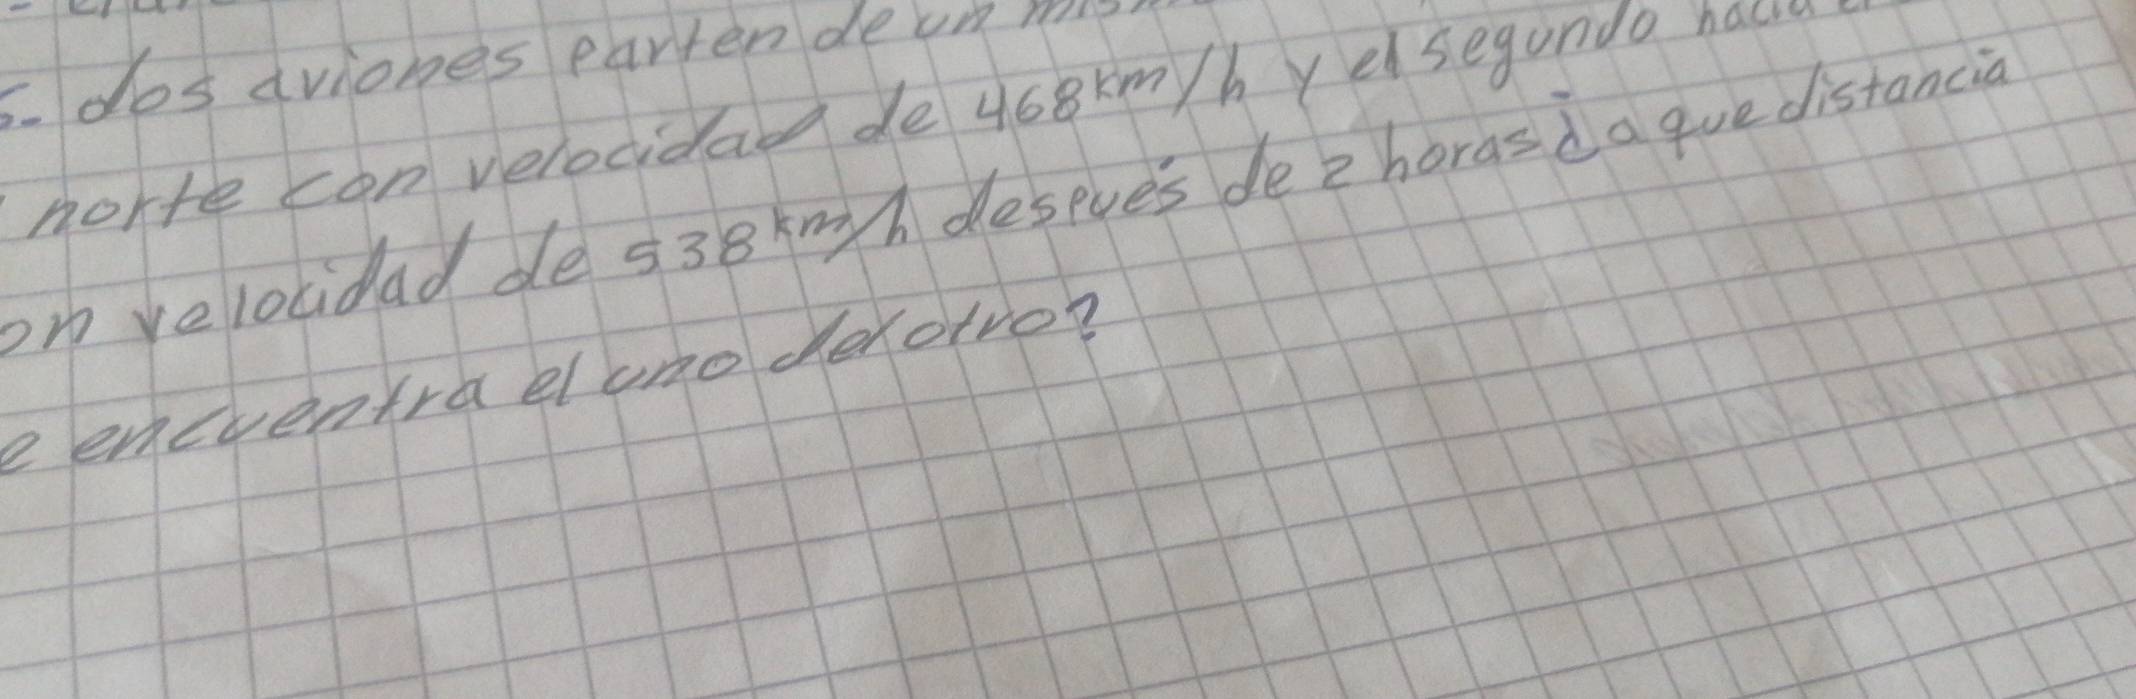 5.- dos aviones parten de un
norte con velocidad de 468 km/h y el segundo hacia
on velocidad de 538 km/h después de 2 horas ¿a que distancia
e encuentra el uno del otro?